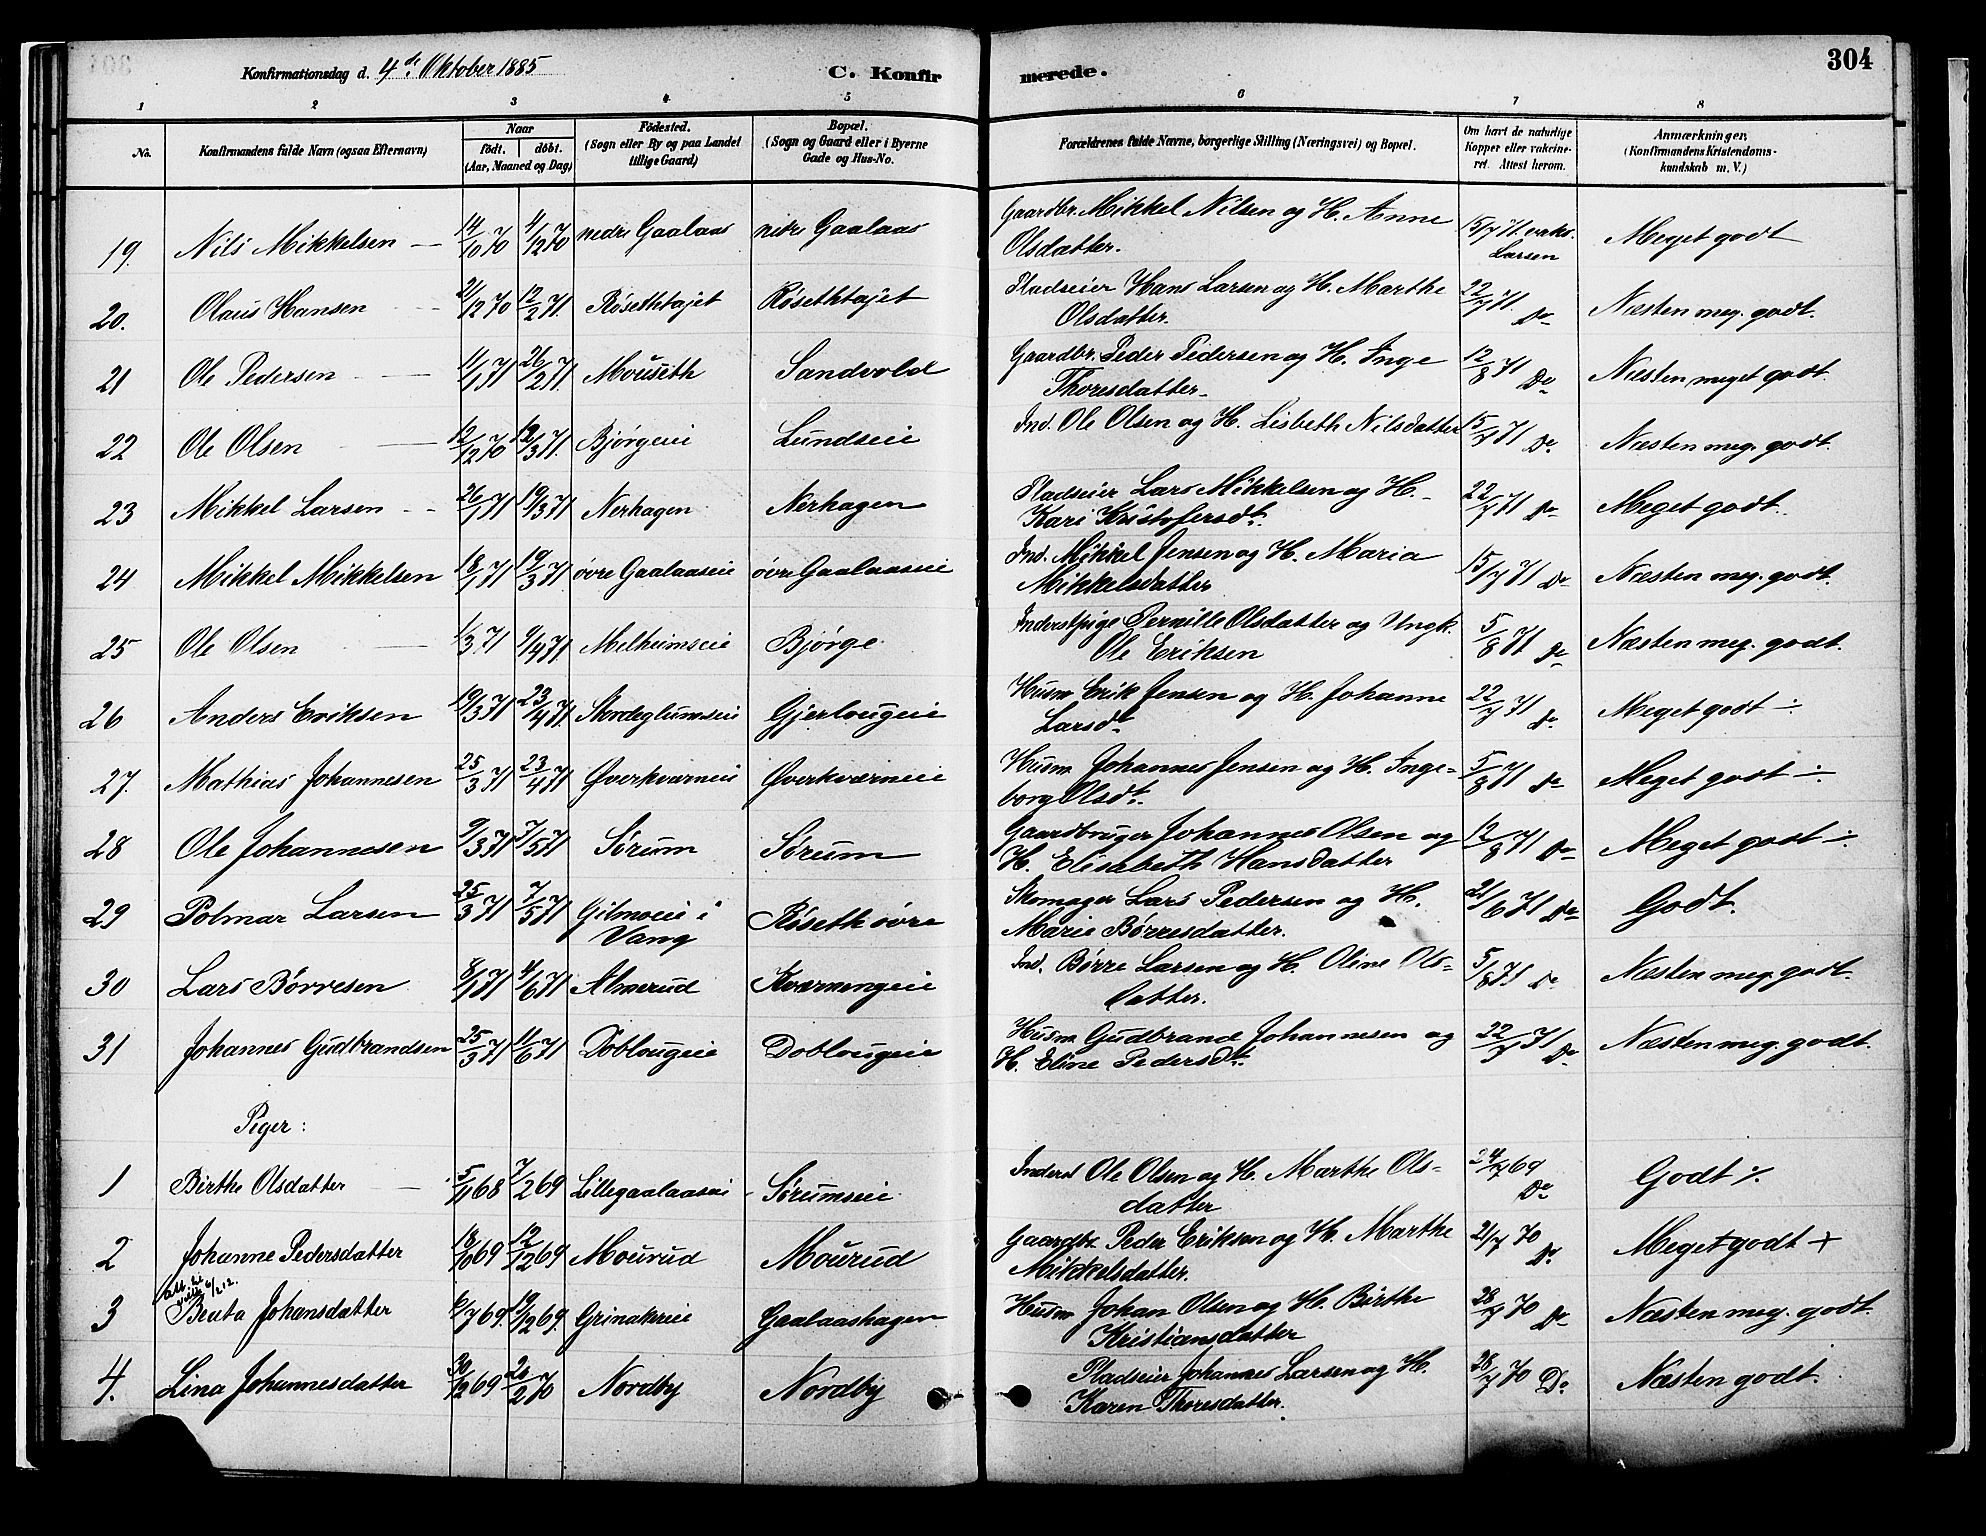 304
Konfirmationsdag d. 4de Oktober 1885
C. Konfir merede.
1 2 3 4 5 6 7 8
No. Konfirmandens fulde Navn (ogsaa Efternavn) Naar födt. döbt. (Aar, Maaned og Dag) Födested. (Sogn eller By og paa Landet tillige Gaard) Bopæl. (Sogn og Gaard eller i Byerne Gade og Hus-No. Forældrenes fulde Navne, borgerlige Stilling (Næringsvei) og Bopæl. Om havt de naturlige Kopper eller vakcineret. Attest herom. Anmærkninger. (Konfirmandens Kristendomskundskab m. V.)
19. Nils Mikkelsen 14/10 70 4/12 70 nedre Gaalaas nedre Gaalaas Gaardbr. Mikkel Nilsen og H. Anne Olsdatter. 15/7 71. vaks. Larsen Meget godt
20. Olaus Hansen 21/12 70 12/2 71 Røsethtajet Røsethtajet Pladseier Hans Larsen og H. Marthe Olsdatter. 22/7 71. Do Næsten meg. godt.
21 Ole Pedersen 11/1 71 26/2 71 Mouseth Sandvold Gaardbr. Peder Pedersen og H. Inge Thoresdatter. 12/8 71 Do Næsten meget godt.
22 Ole Olsen 12/12 70 12/3 71. Bjørgeie Lundseie Ind. Ole Olsen og H. Lisbeth Nilsdatter 15/7 71 Do Næsten meg. godt.
23 Mikkel Larsen 26/1 71 19/3 71 Nerhagen Nerhagen Pladseier Lars Mikkelsen og H. Kari Kristofersdt. 22/7 71 Do Meget godt.
24 Mikkel Mikkelsen 18/1 71 19/3 71 øvre Gaalaaseie øvre Gaalaaseie Ind. Mikkel Jensen og H. Maria Mikkelsdatter 15/7 71 Do Næsten meg. godt.
25 Ole Olsen 1/3 71 9/4 71 Melheimseie Bjørge Inderstpige Pernille Olsdatter og Ungk. Ole Eriksen 5/8 71 Do Næsten meg. godt.
26 Anders Eriksen 19/3 71 23/4 71 Stordeglumseie Gjerlougeie Husm Erik Jensen og H. Johanne Larsdt 22/7 71 Do Meget godt ÷
27. Mathias Johannesen 25/3 71 23/4 71 Øverkværneie Øverkværneie Husm Johannes Jensen og H. Ingeborg Olsdt. 5/8 71 Do Meget godt ÷
28 Ole Johannesen 9/3 71 7/5 71 Sørum Sørum Gaardbruger Johannes Olsen og H. Elisabeth Hansdatter 12/8 71 Do Meget godt ÷
29 Polmar Larsen 25/3 71 7/5 71 Gilmoeie i Vang Røseth øvre Skomager Lars Pedersen og H. Marie Børresdatter. 21/6 71 Do Godt.
30 Lars Børresen 8/1 71 4/6 71 Almerud Kværnengeie Ind. Børre Larsen og H. Oline Olsdatter. 5/8 71 Do Næsten meg. godt.
31 Johannes Gudbrandsen 25/3 71 11/6 71 Doblougeie Doblougeie Husm Gudbrand Johannesen og H. Eline Pedersdt. 22/7 71 Do Næsten meg. godt.
Piger:
1 Birthe Olsdatter 5/11 68 7/2 69 Lillegaalaaseie Sørumseie Inderst Ole Olsen og H. Marthe Olsdatter 24/7 69 Do Godt ÷
2 Johanne Pedersdatter 18/10 69 12/12 69 Mourud Mourud Gaardbr. Peder Eriksen og H. Marthe Mikkelsdatter. 21/7 70 Do Meget godt +
3 Beata Johansdatter 6/7 69. 19/12 69. Grinakreie Gaalaashagen Husm Johan Olsen og H. Birthe Kristiansdatter 28/7 70 Do Næsten meg. godt.
4. Lina Johannesdatter 30/12 69 20/2 70 Nordby Nordby Pladseier Johannes Larsen og H. Karen Thoresdatter. 28/7 70 Do Næsten godt.